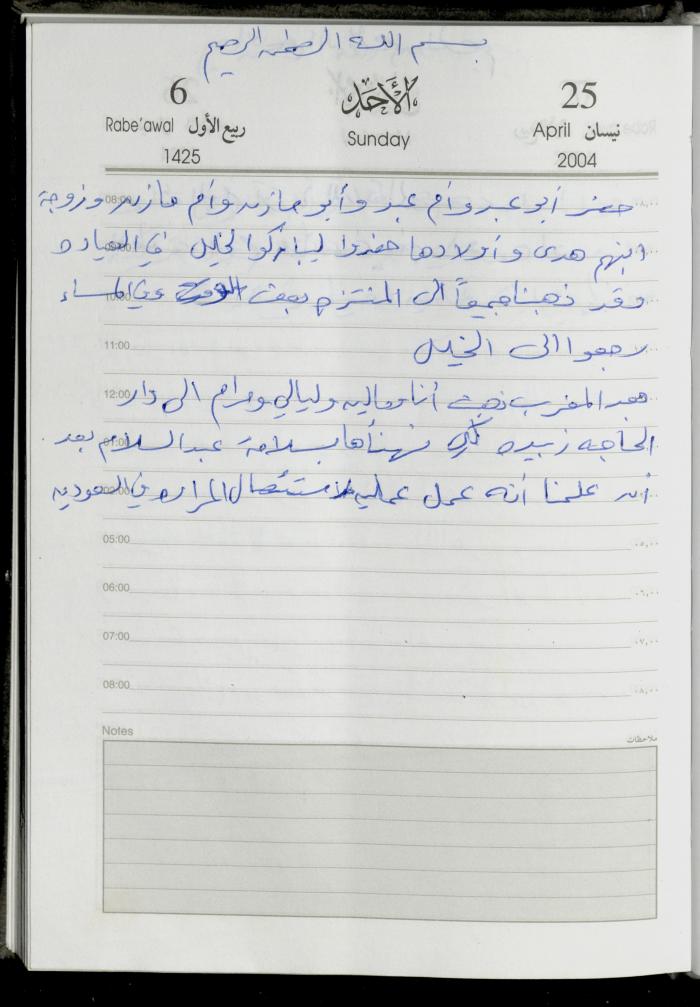 بسم الله الرحمن الرحيم
6 الأحد 25
Rabe'awal ربيع الأول Sunday April نيسان
1425 2004
08:00 حضر أبو عبد وأم عبد وأبو مازن وأم مازن وزوجة
ابنهم هدى وأولادها حضروا ليباركوا لخليل في العيادة
وقد ذهبنا جميعاً الى المنتزه بعض الوقت وفي المساء
11:00 رجعوا الى الخليل
12:00 بعد المغرب ذهبت أنا وعاليه وليالي ومرام الى دار
الحاجه زبيده لكي نهنأها بسلامة عبد السلام بعد
أن علمنا أنه عمل عملية لاستئصال المراره في السعوديه
05:00 ٠٥,٠٠
06:00 ٠٦,٠٠
07:00 ٠٧,٠٠
08:00 ٠٨,٠٠
Notes ملاحظات